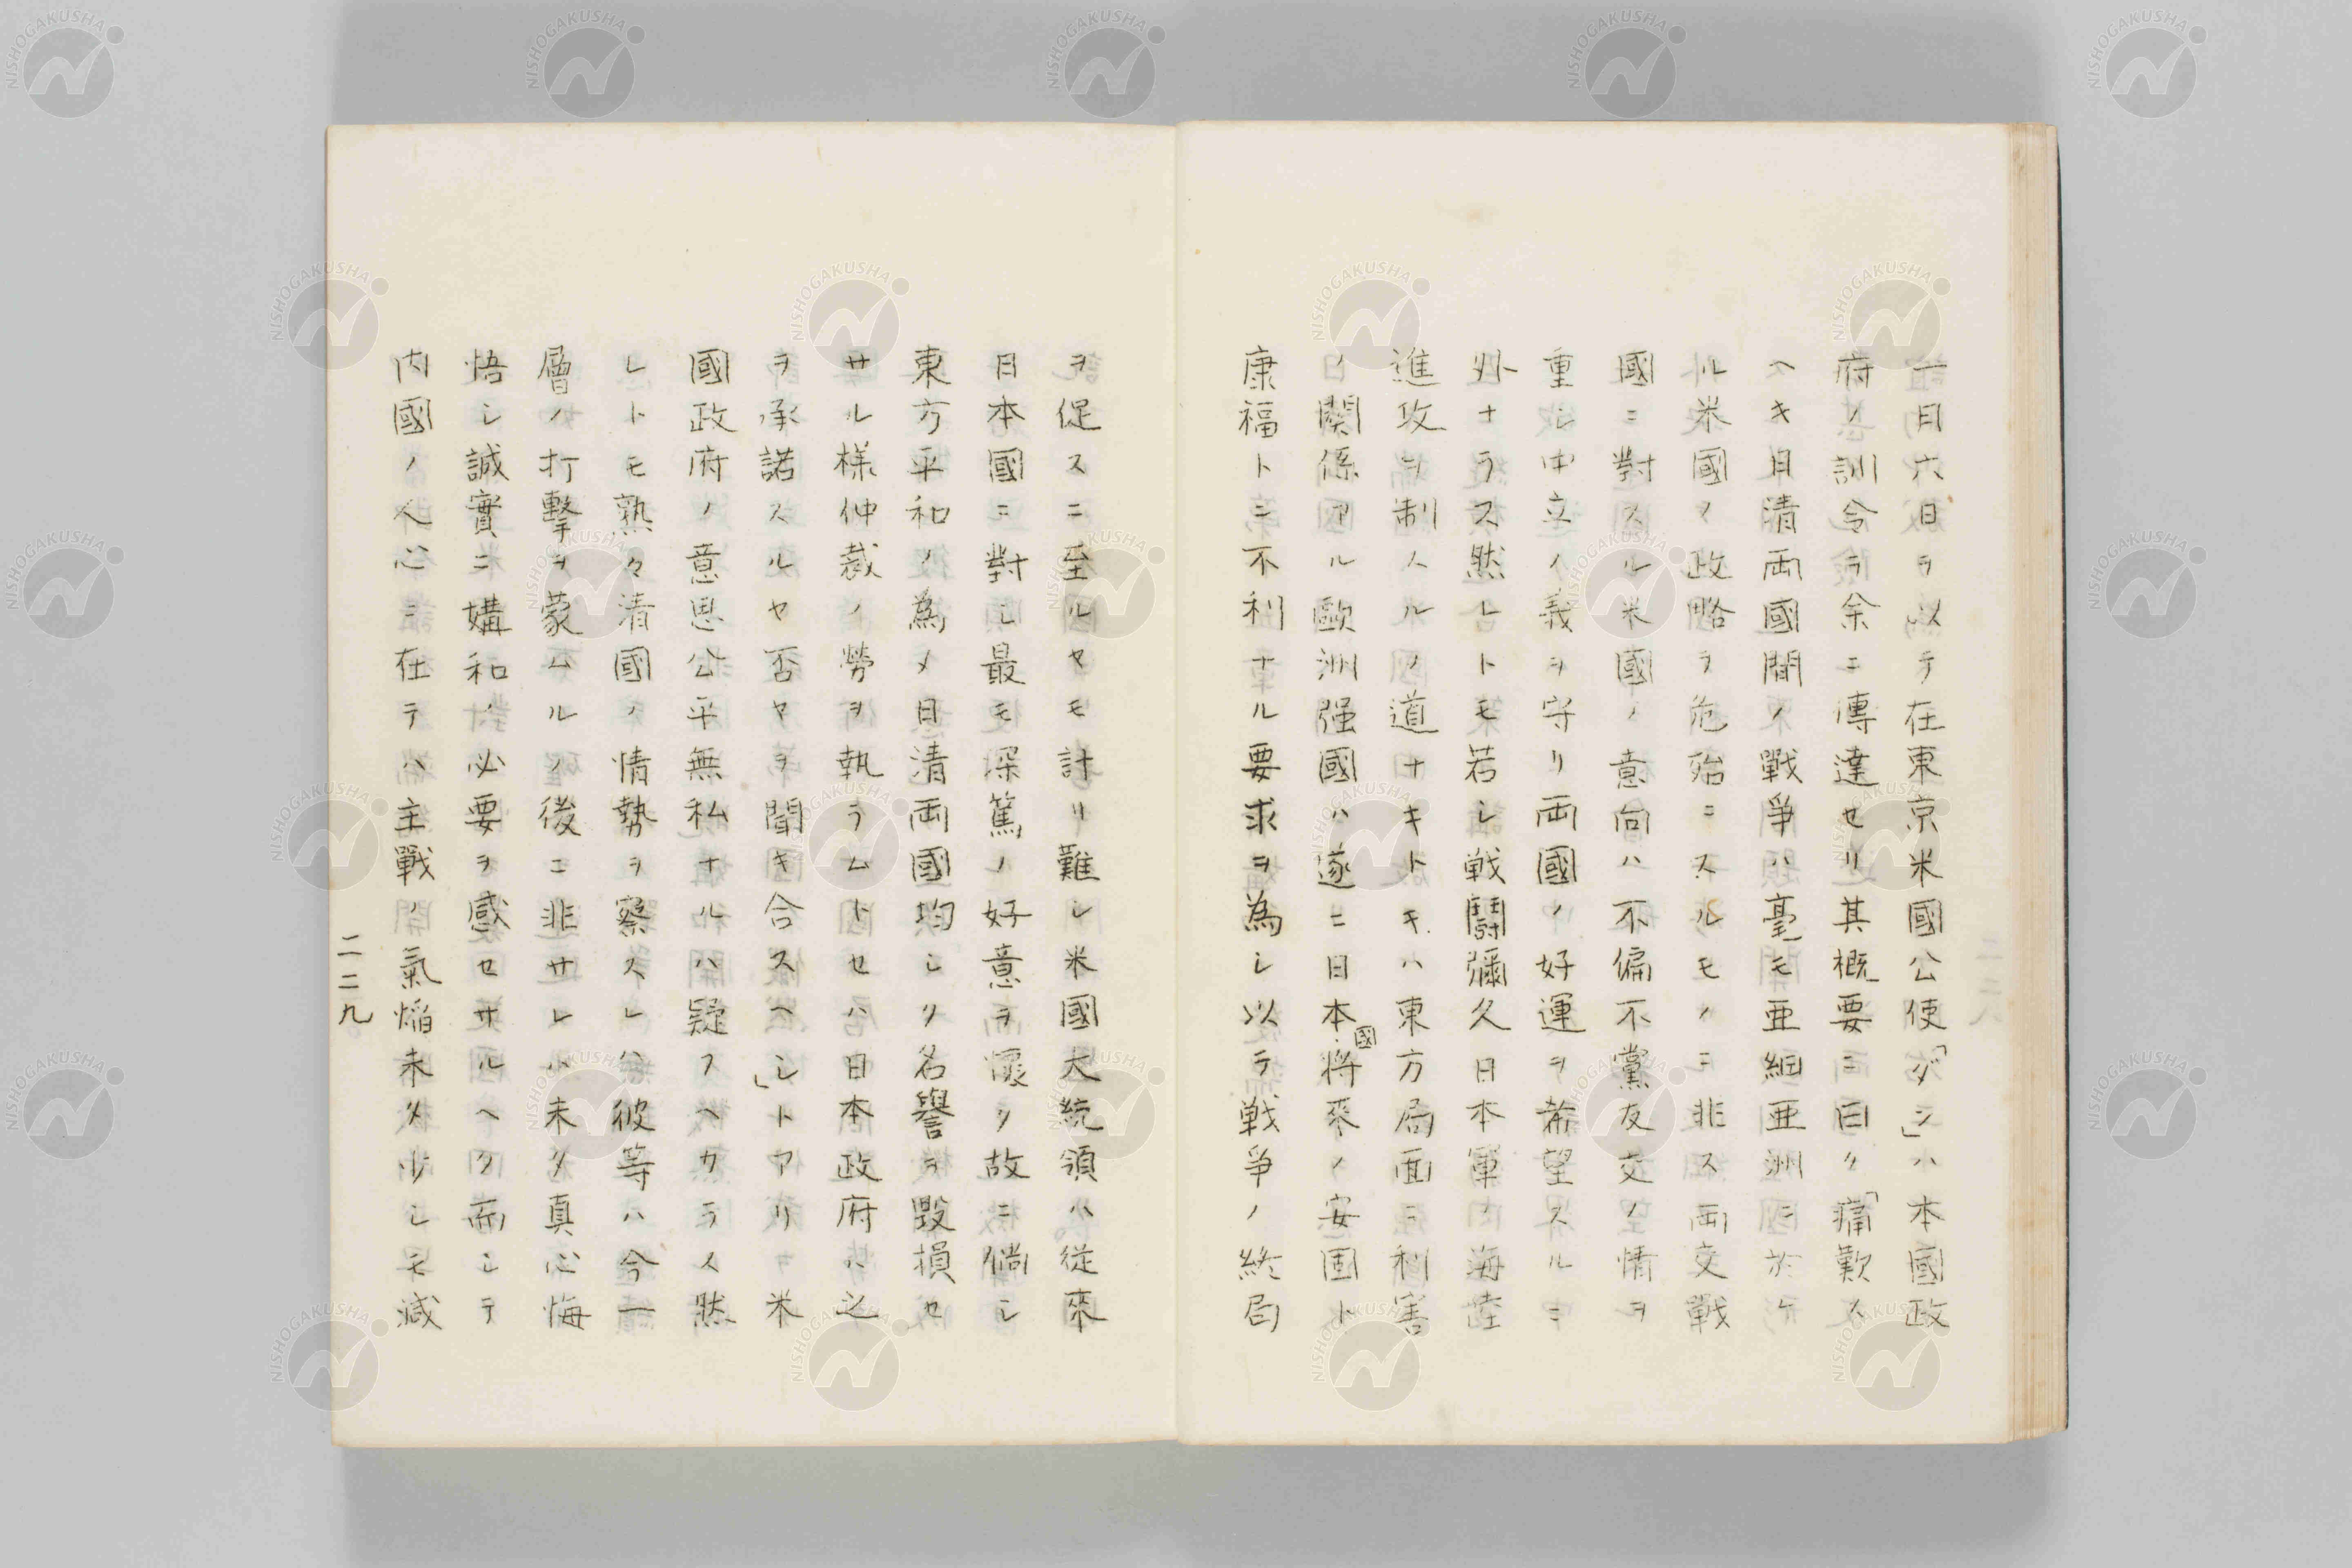 一月六日ヲ以テ在東京米國公使「ダシ」ハ本國政
府ノ訓令ヲ余ニ傳達セリ其概要ニ曰ク「痛歎ス
ヘキ日清両國間ノ戰爭ハ毫モ亜細亜洲ニ於ケ
ル米國ノ政略ヲ危殆ニスルモノニ非ス両交戰
國ニ對スル米國ノ意向ハ不偏不黨友交ノ情ヲ
重シ中立ノ義ヲ守リ両國ノ好運ヲ希望スルニ
外ナラス然レトモ若シ戦鬪彌久日本軍ノ海陸
進攻ヲ制スルノ道ナキトキハ東方局面ニ利害
ノ関係アル歐洲强國ハ遂ニ日本國将來ノ安固ト
康福トニ不利ナル要求ヲ為シ以テ戦爭ノ終局
ヲ促スニ至ルヤモ計リ難シ米國大統領ハ從來
日本國ニ對シ最モ深篤ノ好意ヲ懐ク故ニ倘シ
東方平和ノ為メ日清両國均シク名譽ヲ毀損セ
サル様仲裁ノ勞ヲ執ラムトセハ日本政府ハ之
ヲ承諾スルヤ否ヤヲ聞キ合スヘシ」トアリ米
國政府ノ意思公平無私ナルハ疑フヘカラス然
レトモ熟々清國ノ情勢ヲ察スレハ彼等ハ今一
層ノ打擊ヲ蒙ムルノ後ニ非サレハ未タ真心悔
悟シ誠實ニ媾和ノ必要ヲ感セサルヘク而シテ
内國ノ人心ニ在テハ主戰ノ氣焔未タ少シモ減
二二九
NISHOGAKUSHA